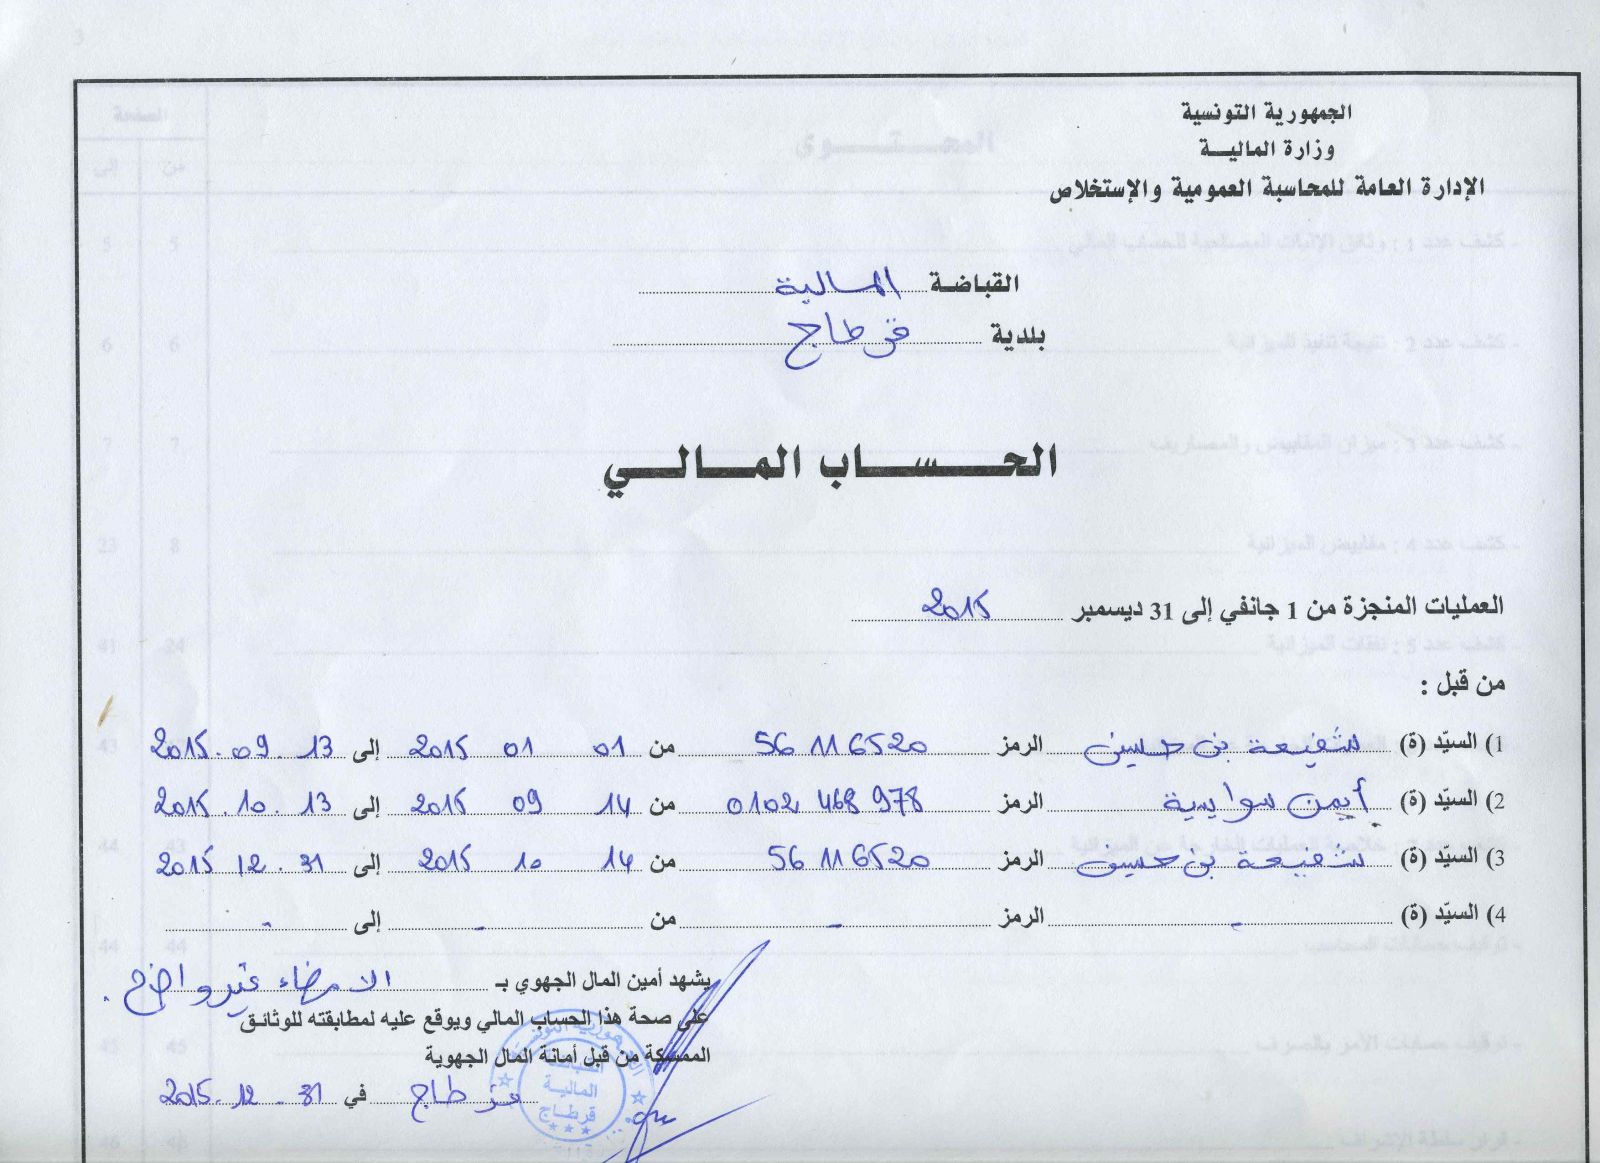 الجمهورية التونسية
وزارة المالية
الإدارة العامة للمحاسبة العمومية والإستخلاص
القباضة المالية
بلدية قرطاج
الحساب المالي
العمليات المنجزة من 1 جانفي إلى 31 ديسمبر 2015
من قبل :
1) السيّد (ة) شفيعة بن حسين الرمز 56 116520 من 01 01 2015 إلى 13 . 09 . 2015
2) السيّد (ة) أيمن سوايسية الرمز 0102 468 978 من 14 09 2015 إلى 13 . 10 . 2015
3) السيّد (ة) شفيعة بن حسين الرمز 56 116520 من 14 10 2015 إلى 31 . 12 2015
4) السيّد (ة) - الرمز - من - إلى -
يشهد أمين المال الجهوي بـ الامضاء غير واضح .
على صحة هذا الحساب المالي ويوقع عليه لمطابقته للوثائق
الممسكة من قبل أمانة المال الجهوية
قرطاج في 31 . 12 . 2015
الجمهورية التونسية
القباضة
المالية
قرطاج